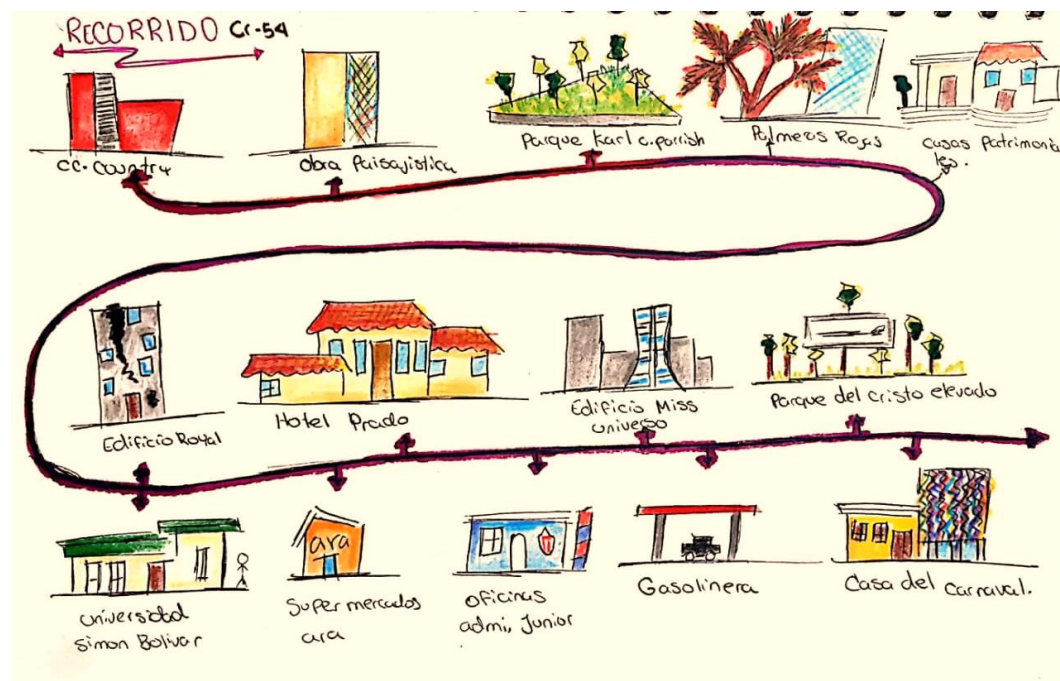 RECORRIDO Cr-54
cc. Country
Obra Paisajistica
Parque Karl c. parrish
Palmeras Rojas
casas Patrimonia
les.
Edificio Royal
Hotel Prado
Edificio Miss
universo
Parque del cristo elevado
ara
universidad
simon Bolivar
Super mercados
ara
oficinas
admi, Junior
Gasolinera
Casa del carnaval.